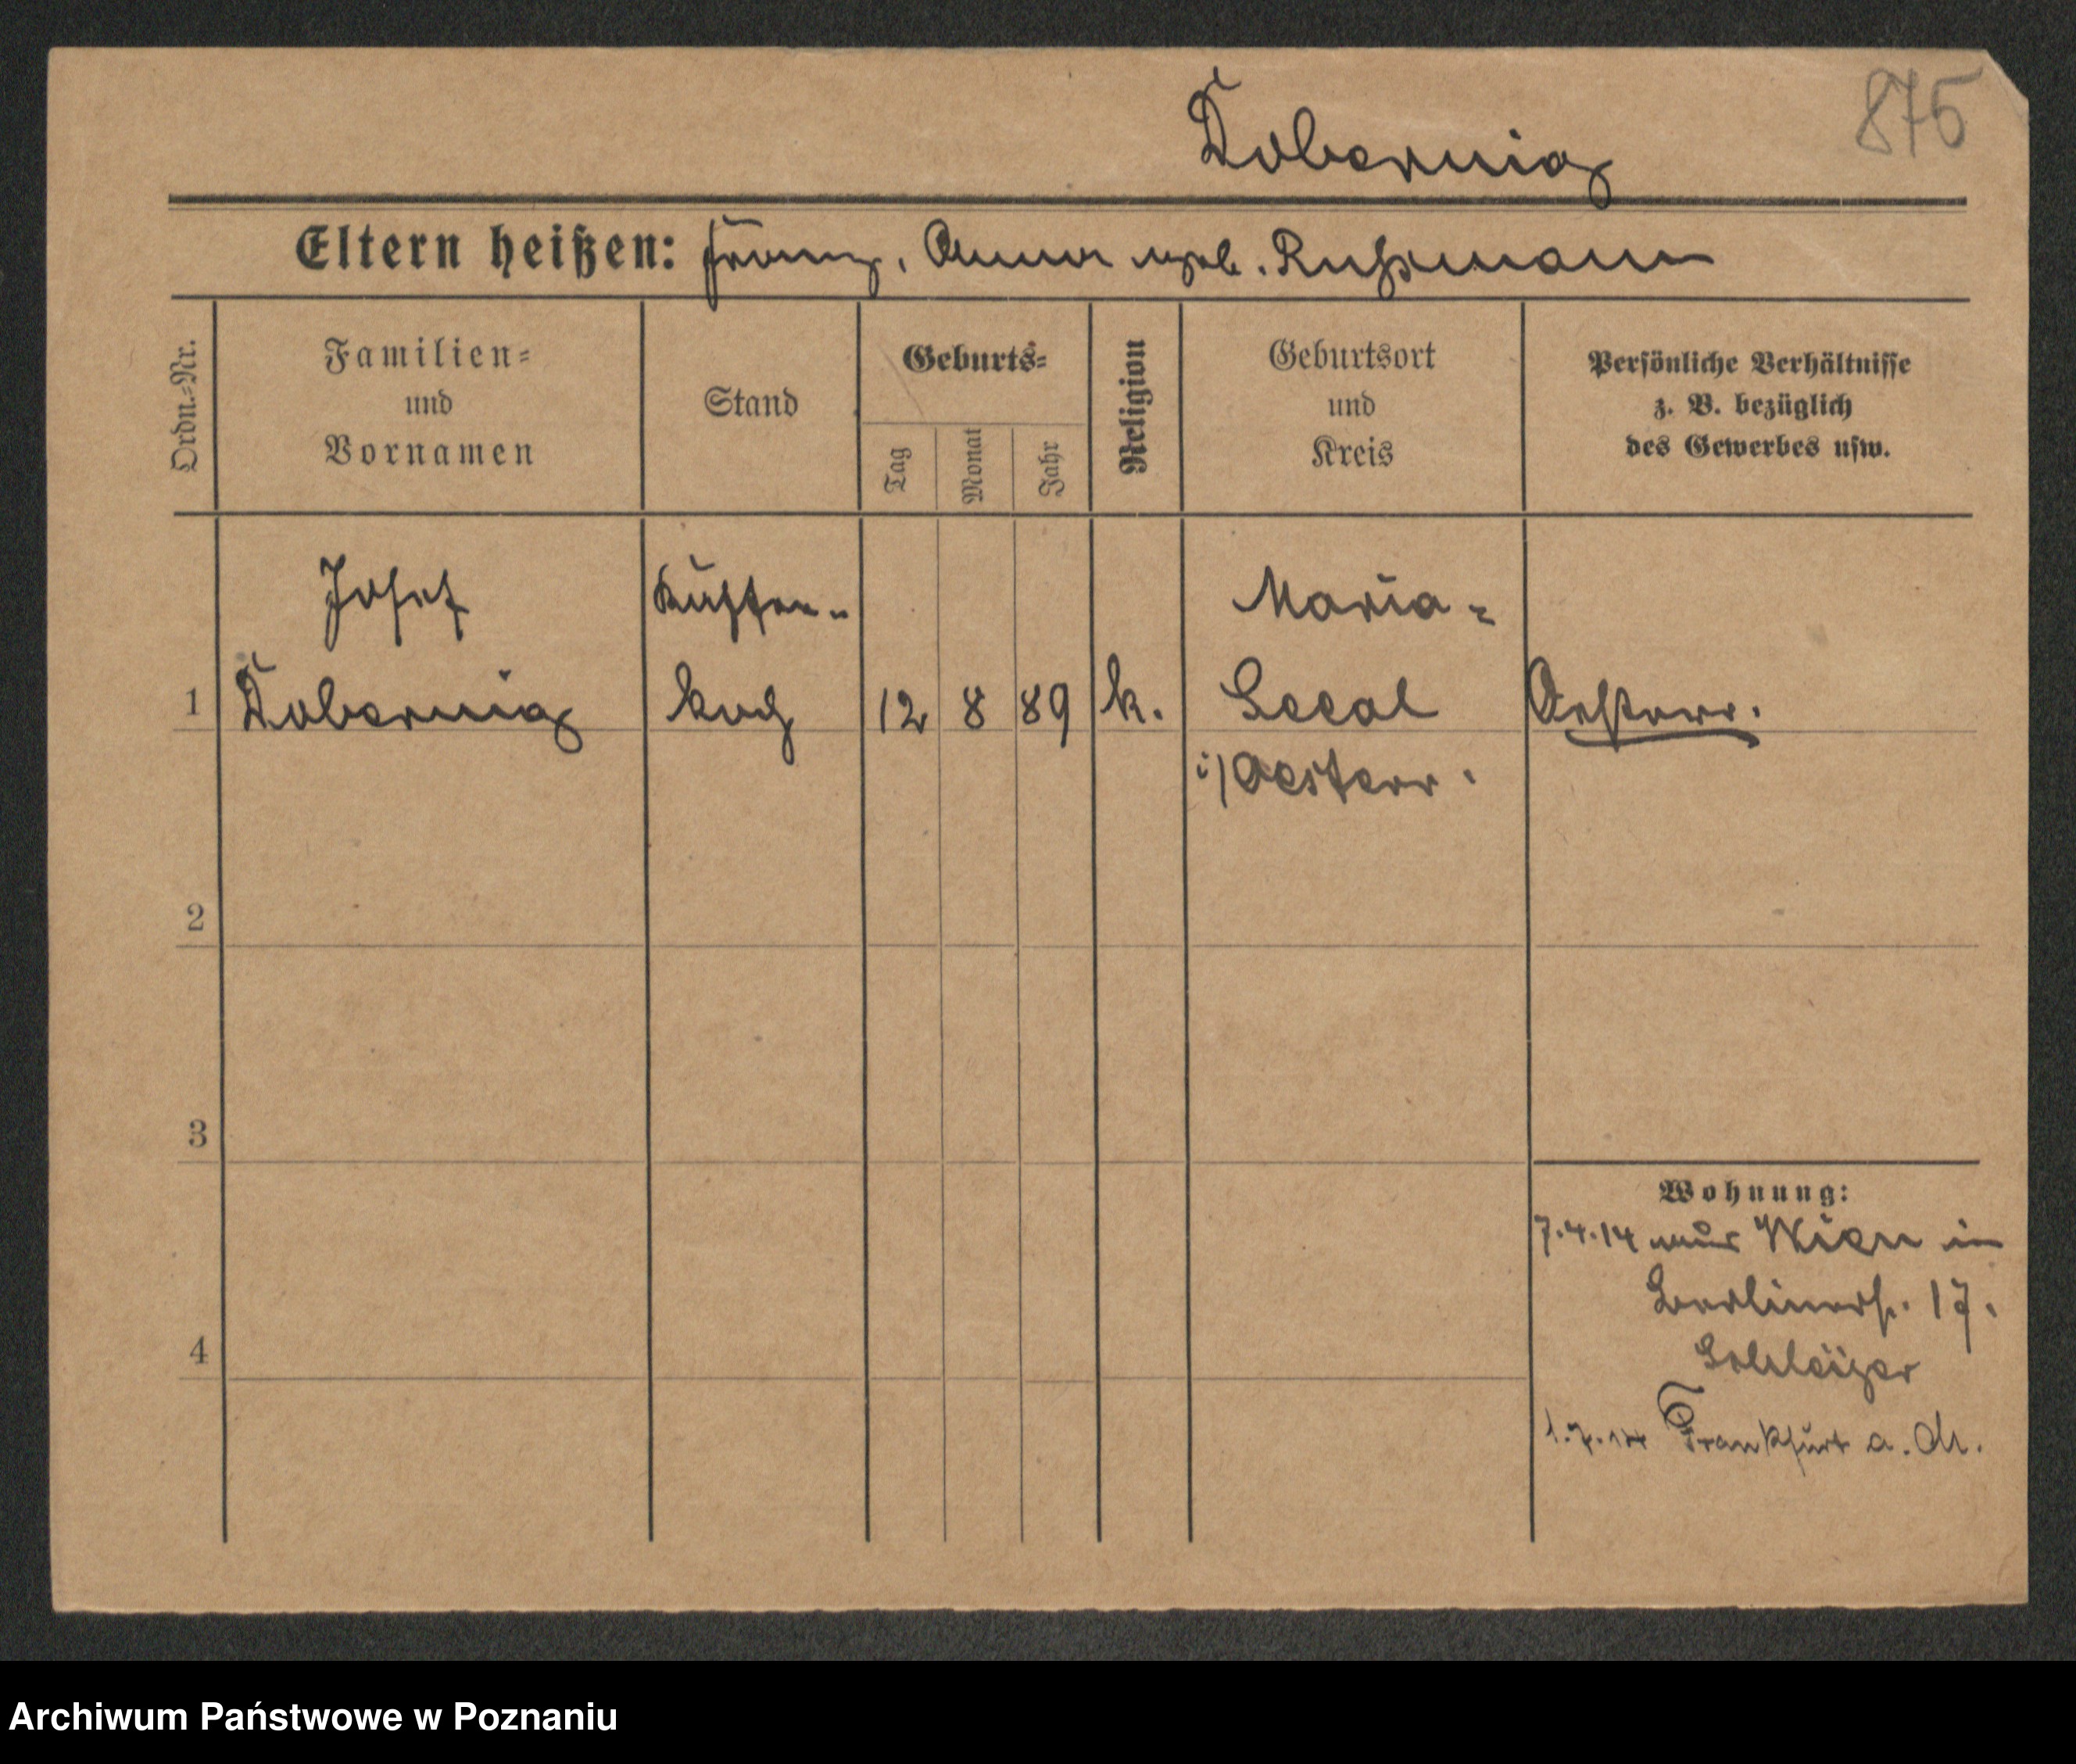 875
Dobernig
Eltern heißen: Franz, Anna geb. Russmann
Ordn.=Nr.
Familien=
und
Vornamen
Stand
Geburts=
Tag
Monat
Jahr
Religion
Geburtsort
und
Kreis
Persönliche Verhältnisse
z. B. bezüglich
des Gewerbes usw.
Josef
Dobernig
koch
1
12
8
89
k.
Maria=
Saal
i/Oesterr.
Oesterr.
2
3
4
Wohnung:
7.4.14 aus Wien in
Berlinerst. 17.
1.7.14 Frankfurt a. M.
Archiwum Państwowe w Poznaniu